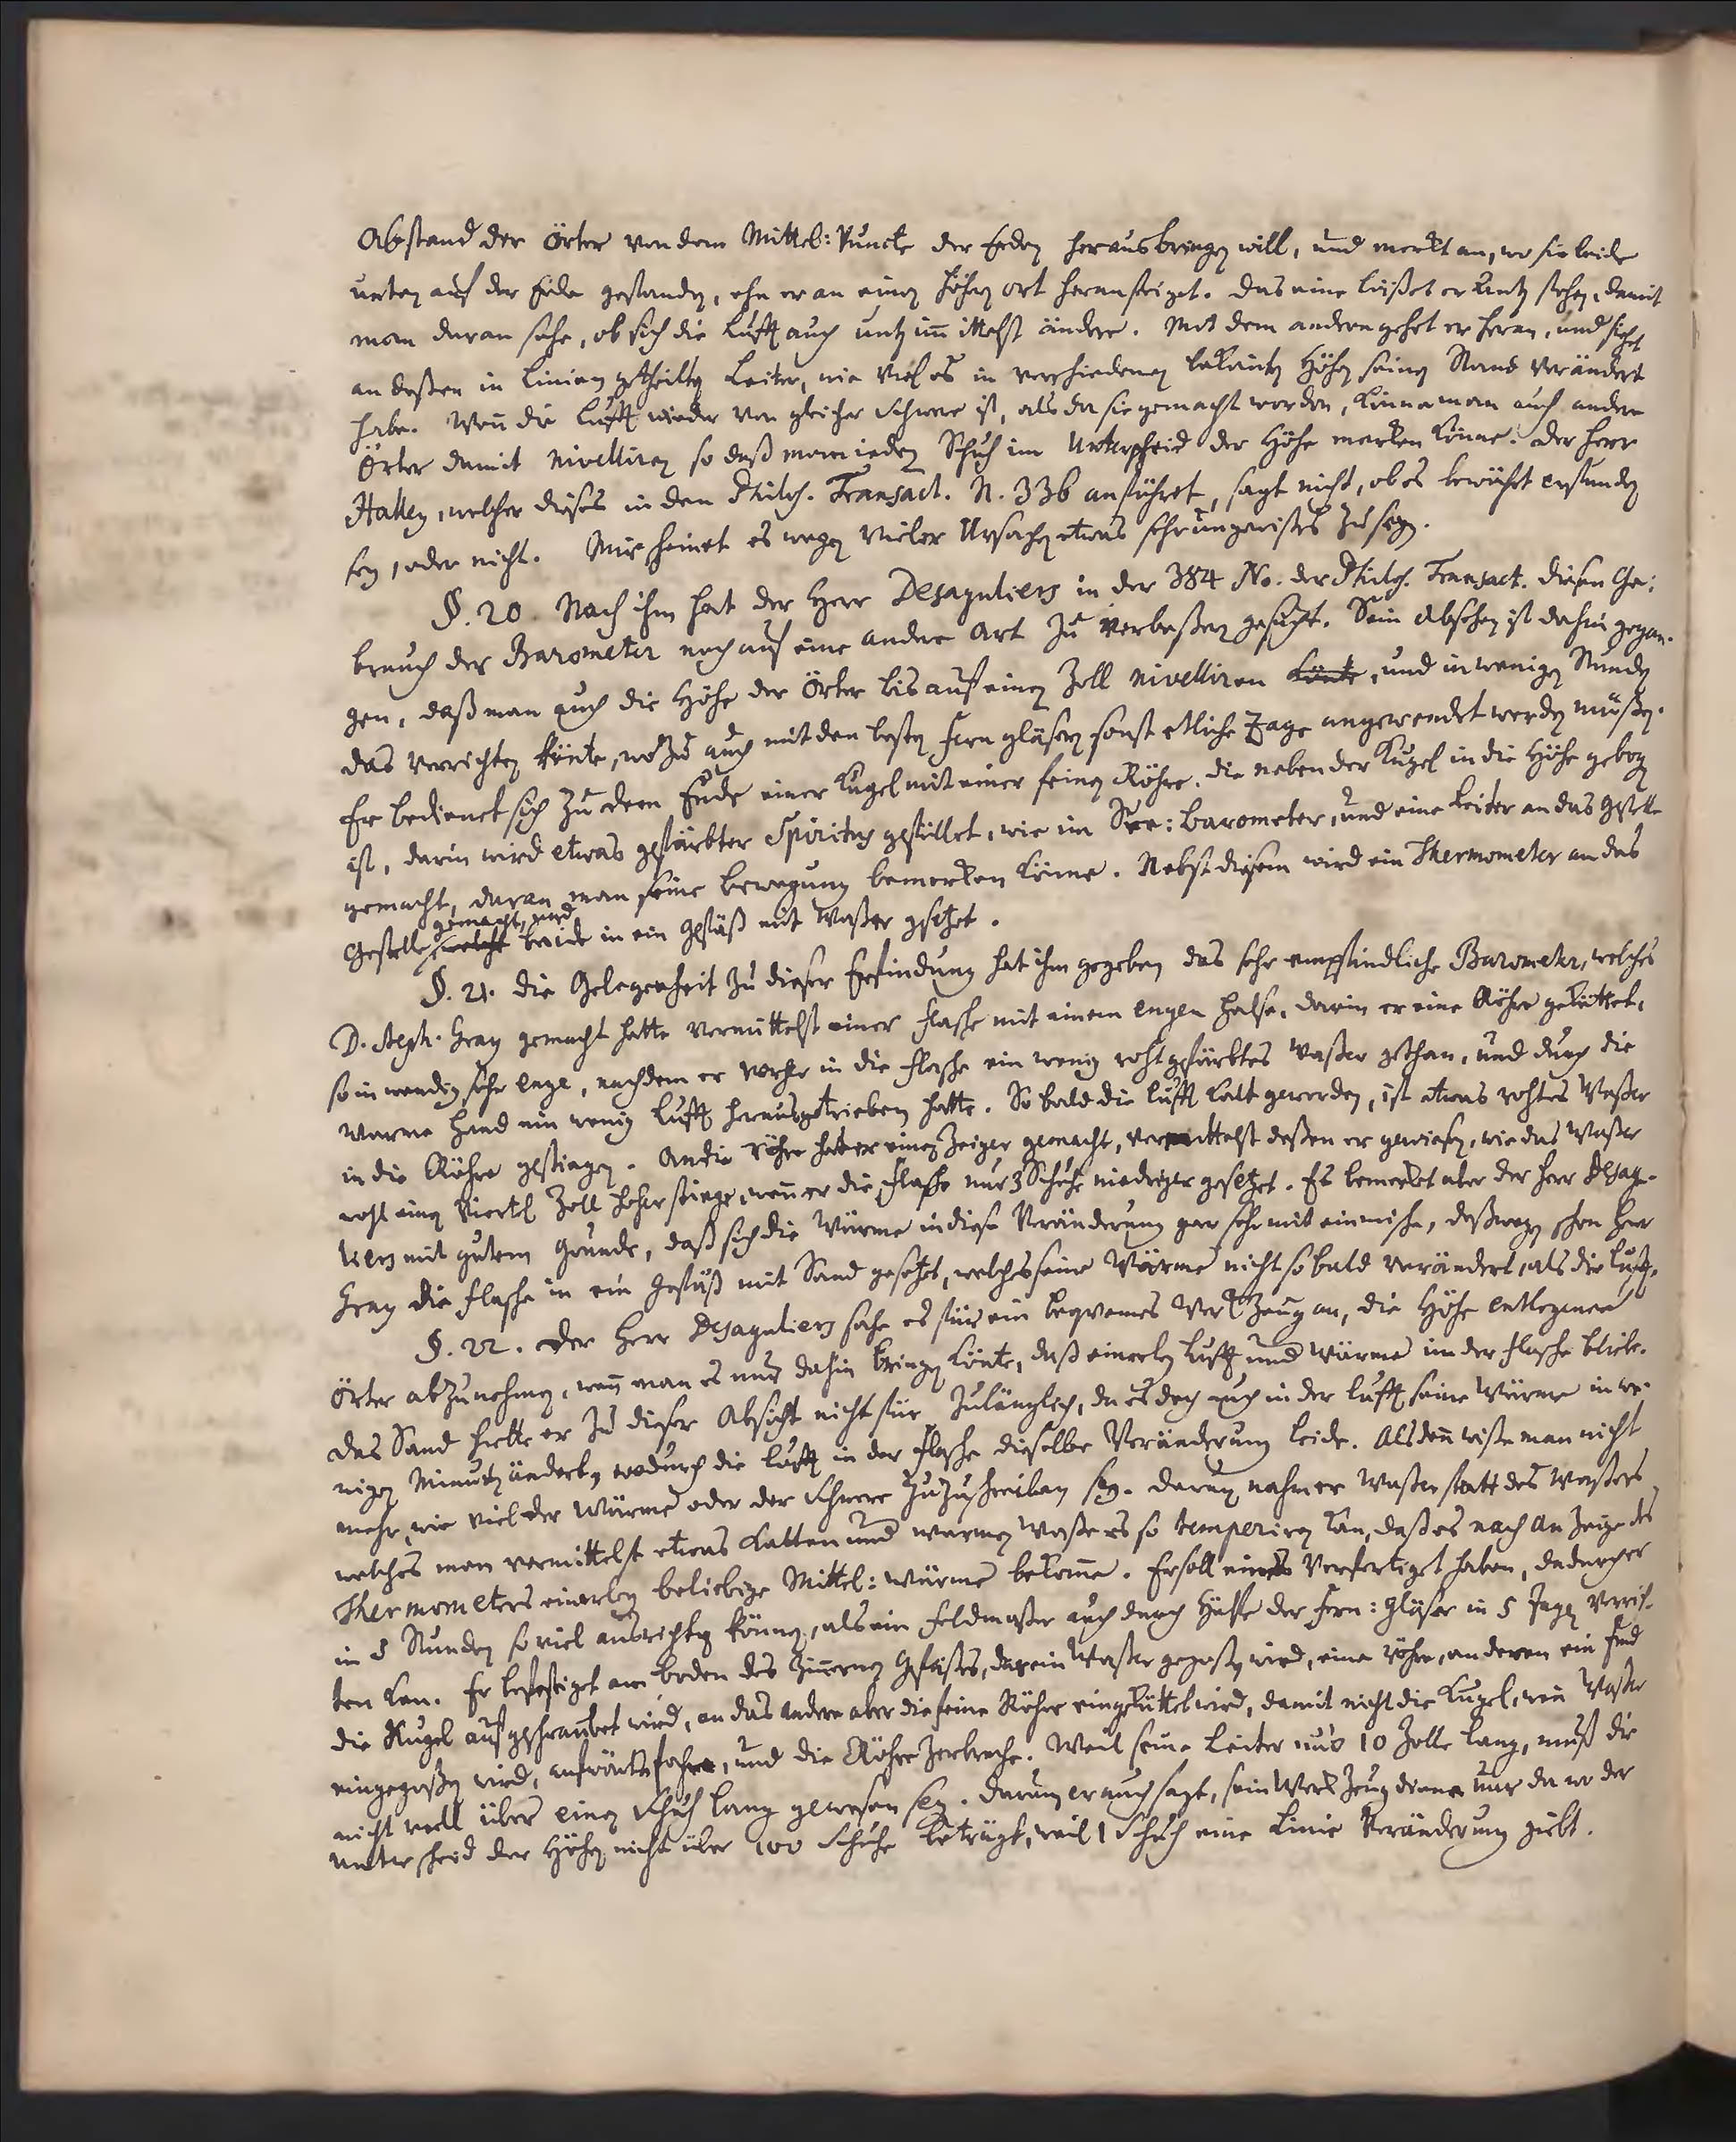 Abstand der Örter von dem Mittel: Puncte der Erden herausbringen will, und merckt an, wo sie beide
unten auf der Erde gestanden, ehe er an einen höhern ort heransteiget. Das eine läßet er unten stehen, damit
man daran sehe, ob sich die Lufft auch unten im̅ittelst ändere. Mit dem andern gehet er heran, und siehet
an deßen in Linien getheilten Leiter, wie viel es in verschiedenen bekanten Höhen seinen Stand verändert
habe. Wen̅ die Lufft wieder von gleicher Schwere ist, als da sie gemacht worden, könne man auch andere
Örter damit nivelliren so daß man ieden Schuh im Unterscheid der Höhe mercken könne. Der Herr
Halley, welcher dieses in den Philos. Transact. N. 336 anführet, sagt nicht, ob es bewährt erfunden
sey, oder nicht. Mir scheinet es wegen vieler Ursachen etwas sehr ungewißes zu seyn.
§. 20. Nach ihm hat der Herr Desaguliers in der 384 No. der Philos. Transact. diesen Ge:
brauch der Barometer noch auf eine andere Art zu verbeßern gesucht. Sein Absehen ist dahin gegan-
gen, daß man auch die Höhe der Örter bis auf einen Zoll nivelliren könte, und in wenigen Stunden
das verrichten könte, wozu auch mit den besten Ferngläsern sonst etliche Tage angewendet werden müßen.
Er bedienet sich zu dem Ende einer Kugel mit einer feinen Röhre, die neben der Kugel in die Höhe gebogen
ist, darin wird etwas gefärbter Spiritus gefüllet, wie im See: barometer, und eine Leiter an das Gestelle
gemacht, daran man seine bewegung bemercken könne. Nebst diesem wird ein Thermometer an das
Gestelle gemacht, und welche beide in ein Gefäß mit Waßer gesetzet.
§. 21. Die Gelegenheit zu dieser Erfindung hat ihm gegeben das sehr empfindliche Barometer, welches
D. Steph. Gray gemacht hatte vermittelst einer Flasche mit einem engen Halse, darin er eine Röhre geküttet,
so inwendig sehr enge, nachdem er vorher in die Flasche ein wenig roht gefärbtes Waßer gethan, und durch die
warme Hand ein wenig Lufft herausgetrieben hatte. So bald die Lufft kalt geworden, ist etwas rohtes Waßer
in die Röhre gestiegen. An die röhre hat er einen Zeiger gemacht, vermittelst deßen er gewiesen, wie das Waßer
wohl einen Viertel Zoll höher stiege, wen̅ er die Flasche nur 3 Schuhe niedriger gesetzet. Es bemercket aber der Herr Desagu-
liers mit gutem Grunde, daß sich die Wärme in diese Veränderung gar sehr mit einmische, deßwegen schon Herr
Gray die Flasche in ein Gefäß mit Sand gesetzet, welches seine Wärme nicht so bald verändert, als die Lufft.
§. 22. Der Herr Desaguliers sahe es für ein beqvemes Werckzeug an, die Höhe entlegener
Örter abzunehmen, wen̅ man es nur dahin bringen könte, daß einerley Lufft und Wärme in der Flasche bliebe.
Das Sand hielte er zu dieser Absicht nicht für zulänglich, da es doch auch in der Lufft seine Wärme in we-
nigen Minuten ändert, wodurch die Lufft in der Flasche dieselbe Veränderung leide. Alsden̅ wiße man nicht
mehr, wie viel der Wärme oder der Schwere zuzuschreiben sey. Darum nahm er Waßer statt des Waßers
welches man vermittelst etwas kalten und warmen Waßers so temperiren kan, daß es nach Anzeige des
Thermometers einerley beliebige Mittel: wärme bekom̅e. Er soll eines verfertiget haben, dadurch er
in 5 Stunden so viel ausrichten können, als ein Feldmeßer auch durch Hülfe der Fern: gläser in 5 Tagen verrich-
ten kan. Er befestiget am boden des zinnernen Gefäßes, darein Waßer gegoßen wird, eine röhre, an deren ein End
die Kugel aufgeschraubet wird, an das andere aber die feine Röhre eingeküttet wird, damit nicht die Kugel, wen̅ Waßer
eingegoßen wird, aufwärts fahre, und die Röhre zerbreche. Weil seine Leiter nur 10 Zolle lang, muß die
nicht voll über einen Schuh lang gewesen sey. Darum er auch sagt, sein Werckzeug diene nur da wo der
unterscheid der Höhen nicht über 100 Schuhe beträgt, weil 1 Schuh eine Linie Veränderung giebt.